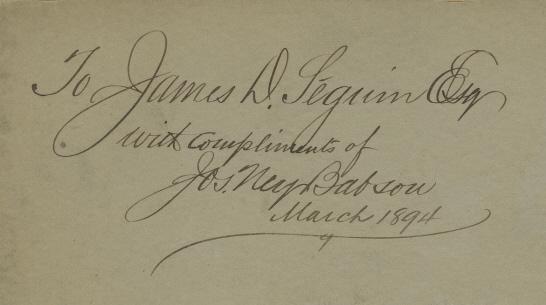 To James D. Séguin Esq
with compliments of
Jos. Ney Babson
March 1894